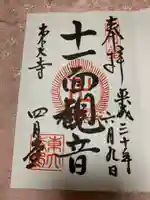 奉拝
平成三十年
一月九日
十一面観音
東大寺
四月堂